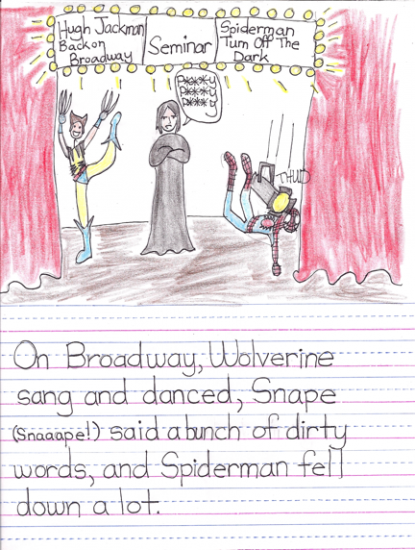 Hugh Jackman
Back on
Broadway
Seminar
Spiderman
Turn Off The
Dark
P***y
P***y
P***y
THUD
On Broadway, Wolverine
sang and danced, Snape
(Snaaape!) said a bunch of dirty
words, and Spiderman fell
down a lot.